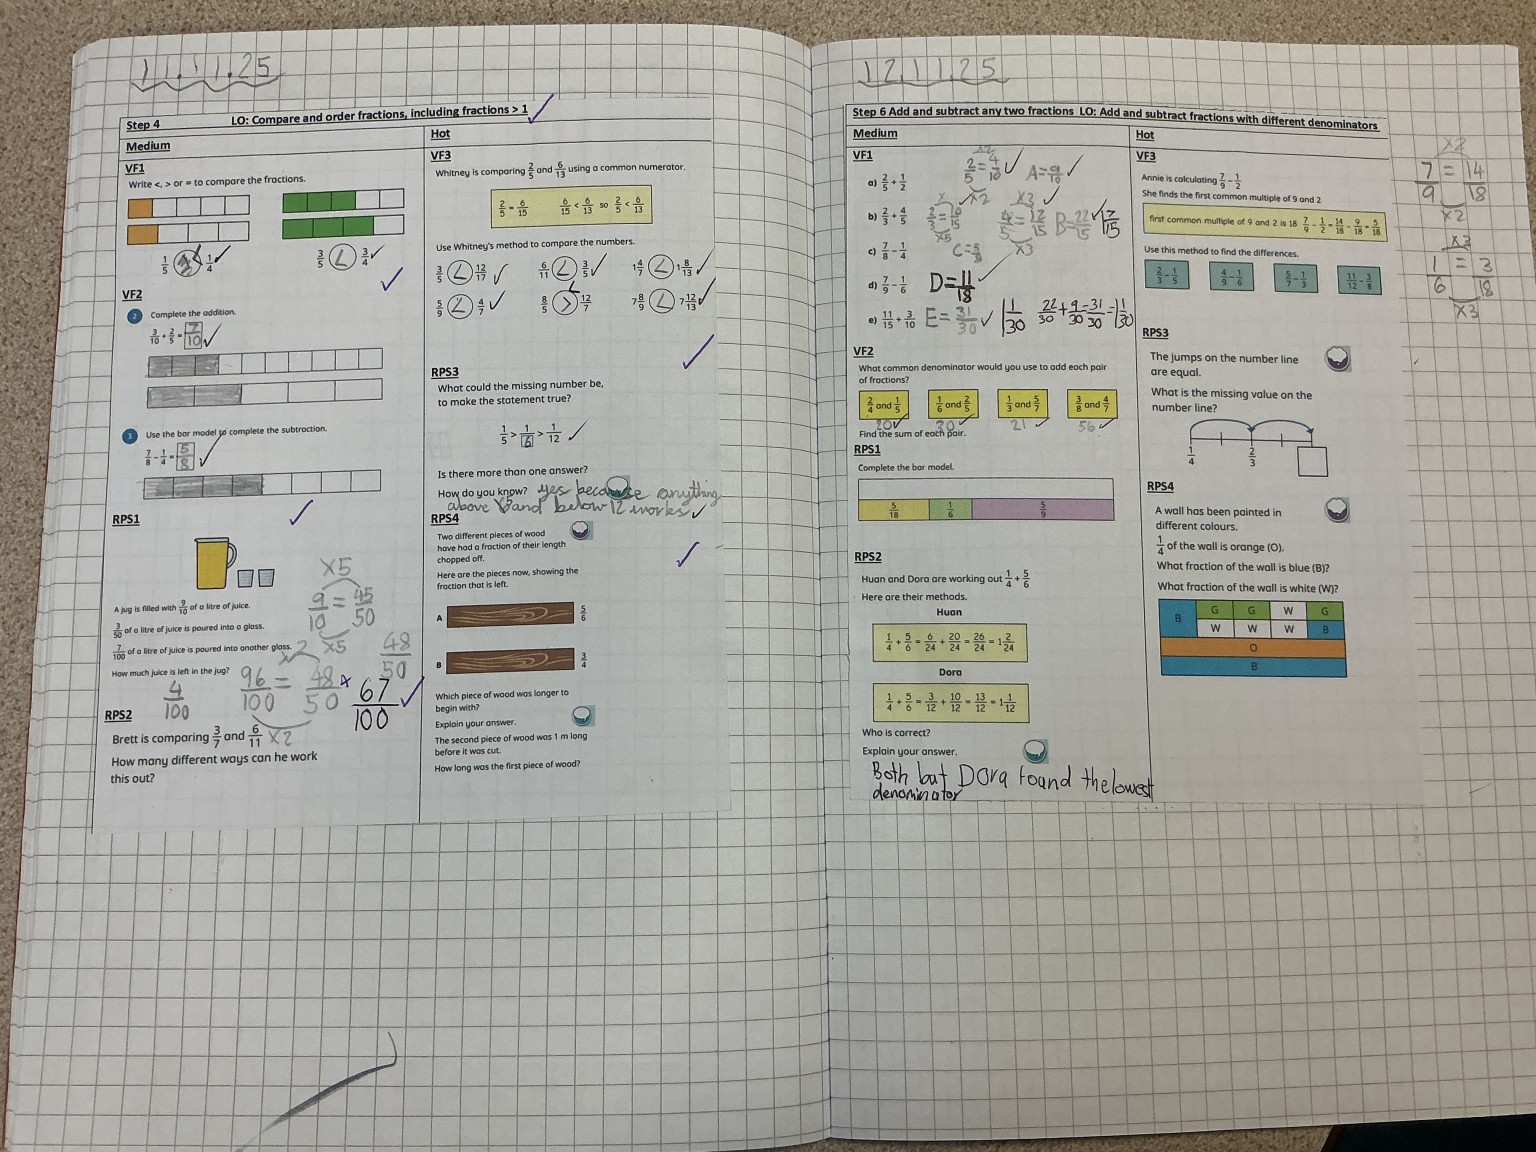 11.11.25
Step 4 LO: Compare and order fractions, including fractions > 1
Medium
VF1
Write <, > or = to compare the fractions.
1/5 < 1/4 3/5 < 3/4
VF2
2 Complete the addition.
3/10 + 2/5 = 7/10
3 Use the bar model to complete the subtraction.
7/8 - 1/4 = 5/8
RPS1
A jug is filled with 9/10 of a litre of juice.
3/50 of a litre of juice is poured into a glass.
7/100 of a litre of juice is poured into another glass.
How much juice is left in the jug?
x5
9/10 = 45/50
x5
48/50
x2
4/100 96/100 = 48/50 67/100
x2
RPS2
Brett is comparing 3/7 and 6/11
How many different ways can he work
this out?
Hot
VF3
Whitney is comparing 2/5 and 6/13 using a common numerator.
2/5 = 6/15 6/15 < 6/13 so 2/5 < 6/13
Use Whitney's method to compare the numbers.
3/5 < 12/17 6/11 < 3/5 1 4/7 < 1 8/13
5/9 < 4/7 8/5 > 12/7 7 8/9 < 7 12/13
RPS3
What could the missing number be,
to make the statement true?
1/5 > 1/6 > 1/12
Is there more than one answer?
How do you know? yes because anything
above 5 and below 12 works
RPS4
Two different pieces of wood
have had a fraction of their length
chopped off.
Here are the pieces now, showing the
fraction that is left.
A 5/6
B 3/4
Which piece of wood was longer to
begin with?
Explain your answer.
The second piece of wood was 1 m long
before it was cut.
How long was the first piece of wood?
12.11.25
Step 6 Add and subtract any two fractions LO: Add and subtract fractions with different denominators
Medium
VF1
x2
a) 2/5 + 1/2 2/5 = 4/10 A = 9/10
x2 x3
b) 2/3 + 4/5 2/3 = 10/15 4/5 = 12/15 B = 22/15 1 7/15
x5 x3
c) 7/8 - 1/4 C = 5/8
d) 7/9 - 1/6 D = 11/18
e) 11/15 + 3/10 E = 31/30 1 1/30 22/30 + 9/30 = 31/30 = 1 1/30
VF2
What common denominator would you use to add each pair
of fractions?
2/4 and 1/5 1/6 and 2/5 1/3 and 5/7 3/8 and 4/7
20 30 21 56
Find the sum of each pair.
RPS1
Complete the bar model.
5/18 1/6 5/9
RPS2
Huan and Dora are working out 1/4 + 5/6
Here are their methods.
Huan
1/4 + 5/6 = 6/24 + 20/24 = 26/24 = 1 2/24
Dora
1/4 + 5/6 = 3/12 + 10/12 = 13/12 = 1 1/12
Who is correct?
Explain your answer.
Both but Dora found the lowest
denominator
Hot
VF3
Annie is calculating 7/9 - 1/2
She finds the first common multiple of 9 and 2
first common multiple of 9 and 2 is 18 7/9 - 1/2 = 14/18 - 9/18 = 5/18
Use this method to find the differences.
2/3 - 1/5 4/9 - 1/6 5/7 - 1/3 11/12 - 3/8
RPS3
The jumps on the number line
are equal.
What is the missing value on the
number line?
1/4 2/3
RPS4
A wall has been painted in
different colours.
1/4 of the wall is orange (O).
What fraction of the wall is blue (B)?
What fraction of the wall is white (W)?
B G G W G
W W W B
O
B
x2
7/9 = 14/18
x2
x3
1/6 = 3/18
x3